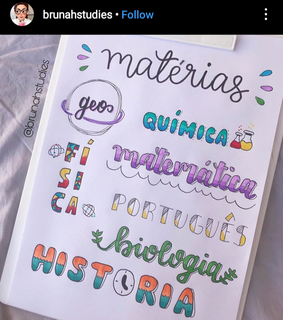 brunahstudies • Follow
matérias
@brunahstudies
geo
QUÍMICA
FÍSICA
matemática
PORTUGUÊS
biologia
HISTORIA